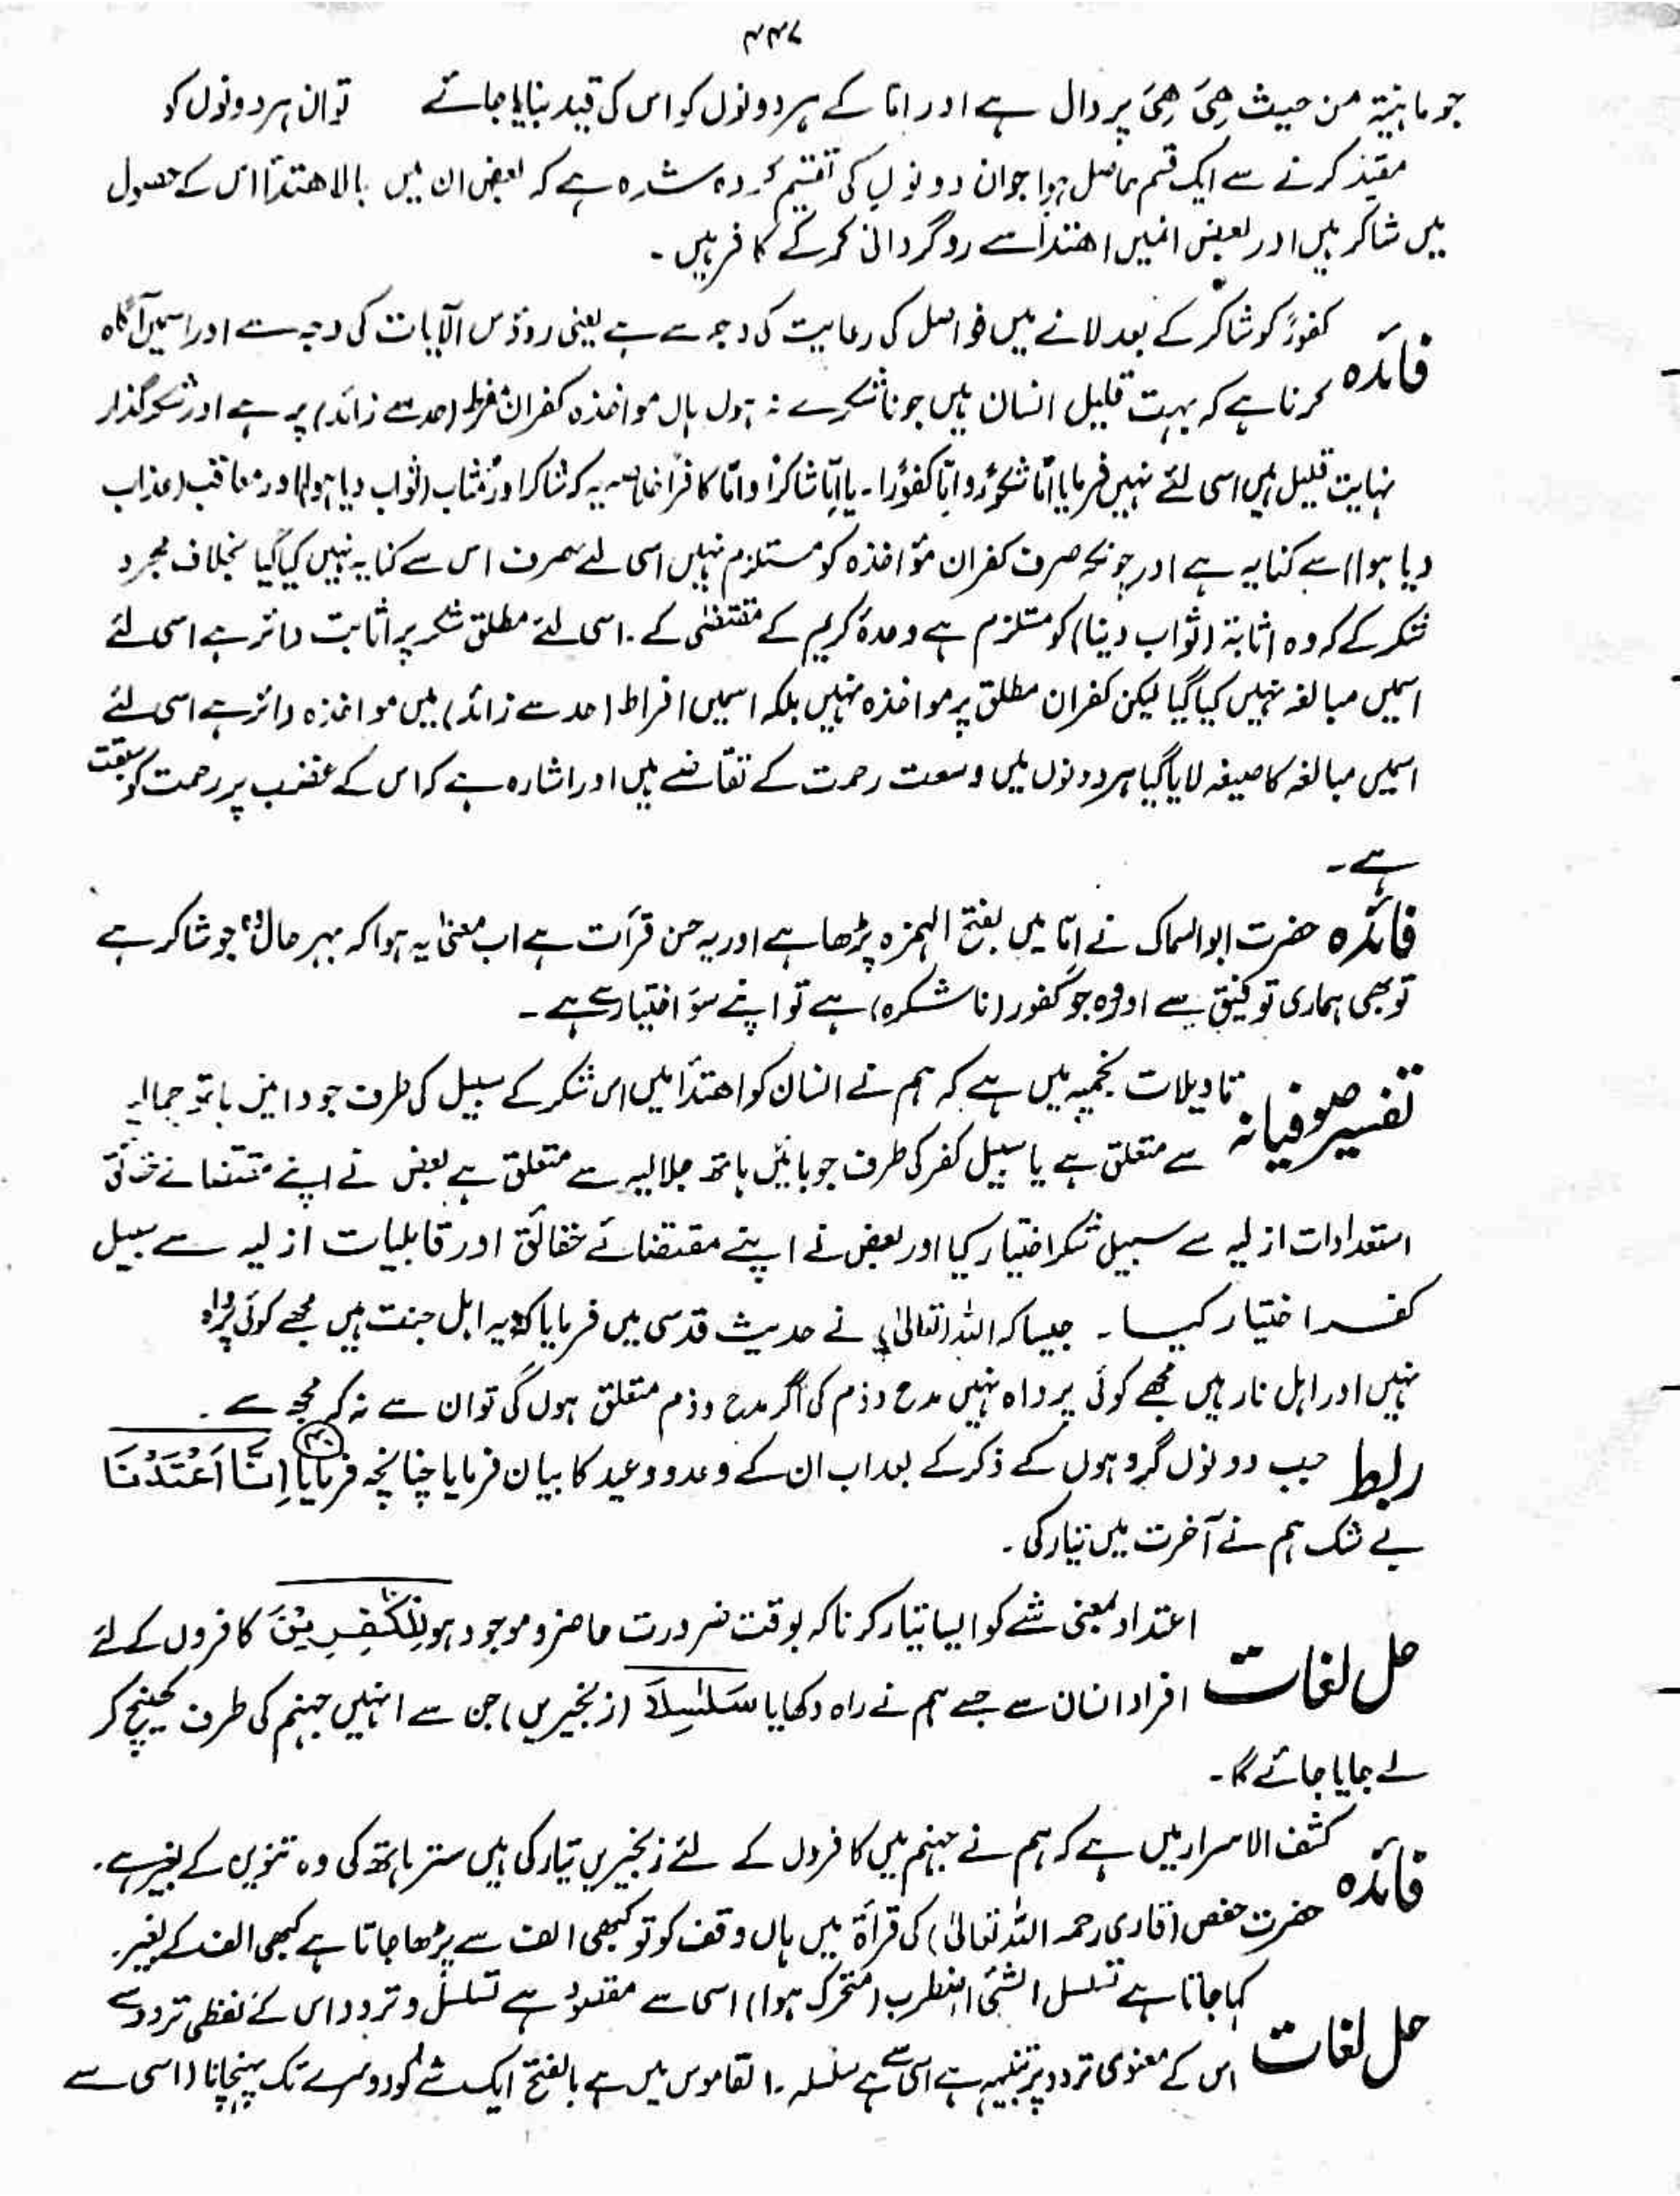 ۴۴۷
جو ماہیۃ من حیث ھِیَ ھِیَ پر دال ہے اور اما کے ہر دونوں کو اس کی قید بنایا جائے تو ان ہر دونوں کو
مقید کرنے سے ایک قسم حاصل ہوا جو ان دونوں کی تقسیم کردہ شدہ ہے کہ بعض ان میں بالاھتدأ اس کے حصول
میں شاکر ہیں اور بعض انہیں اھتدأ سے روگردانی کرکے کافر ہیں ۔
فائدہ کفورًا کو شاکر کے بعد لانے میں فواصل کی رعایت کی وجہ سے ہے یعنی روؤس الآیات کی وجہ سے اور اسمیں آگاہ
کرنا ہے کہ بہت قلیل انسان ہیں جو ناشکرے نہ ہوں ہاں مواخذہ کفران مفرط (حد سے زائد) پر ہے اور شکر گذار
نہایت قلیل ہیں اسی لئے نہیں فرمایا امّا شکورًا و امّا کفورًا ۔ یا امّا شاکرًا و امّا کافرًا خلاصہ یہ کہ شاکر اور مُثاب (ثواب دیا ہوا) اور معاقب (عذاب
دیا ہوا) سے کنایہ ہے اور چونکہ صرف کفران مؤاخذہ کو مستلزم نہیں اسی لئے صرف اس سے کنایہ نہیں کیا گیا بخلاف مجرد
شکر کے کہ وہ اثابۃ (ثواب دینا) کو مستلزم ہے وعدۂ کریم کے مقتضٰی کے ۔ اسی لئے مطلق شکر پر اثابت دائر ہے اسی لئے
اسمیں مبالغہ نہیں کیا گیا لیکن کفران مطلق پر مواخذہ نہیں بلکہ اسمیں افراط (حد سے زائد) میں مواخذہ دائر ہے اسی لئے
اسمیں مبالغہ کا صیغہ لایا گیا ہر دونوں میں وسعت رحمت کے تقاضے ہیں اور اشارہ ہے کہ اس کے غضب پر رحمت کو سبقت
ہے ۔
فائدہ حضرت ابو السماک نے امّا میں بفتح الہمزہ پڑھا ہے اور یہ حسن قرأت ہے اب معنیٰ یہ ہوا کہ بہر حال وہ جو شاکر ہے
تو بھی ہماری توفیق سے اور وہ جو کفور (ناشکرہ) ہے تو اپنے سؤ اختیار سے ہے ۔
تفسیر صوفیانہ تاویلات نجمیہ میں ہے کہ ہم نے انسان کو اھتدأ میں اس شکر کے سبیل کی طرف جو دائیں ہاتھ جمالیہ
سے متعلق ہے یا سبیل کفر کی طرف جو بائیں ہاتھ جلالیہ سے متعلق ہے بعض نے اپنے مقتضائے حقائق
استعدادات ازلیہ سے سبیل شکر اختیار کیا اور بعض نے اپنے مقتضائے حقائق اور قابلیات ازلیہ سے سبیل
کفر اختیار کیا ۔ جیسا کہ اللہ (تعالیٰ) نے حدیث قدسی میں فرمایا کہ یہ اہل جنت ہیں مجھے کوئی پرواہ
نہیں اور اہل نار ہیں مجھے کوئی پرواہ نہیں مدح و ذم کی اگر مدح و ذم متعلق ہوں گی تو ان سے نہ کہ مجھ سے ۔
ربط جب دونوں گروہوں کے ذکر کے بعد اب ان کے وعد و وعید کا بیان فرمایا چنانچہ فرمایا اِنَّا اَعْتَدْنَا
بے شک ہم نے آخرت میں تیار کی ۔
حل لغات اعتداد بمعنی شے کو ایسا تیار کرنا کہ بوقت ضرورت حاضر و موجود ہو لِلْکٰفِرِیْنَ کافروں کے لئے
افراد انسان سے جسے ہم نے راہ دکھایا سَلٰسِلَا (زنجیریں) جن سے انہیں جہنم کی طرف کھینچ کر
لے جایا جائے گا ۔
فائدہ کشف الاسرار میں ہے کہ ہم نے جہنم میں کافروں کے لئے زنجیریں تیار کی ہیں ستر ہاتھ کی وہ تنوین کے بغیر ہے ۔
حضرت حفص (قاری رحمہ اللہ تعالیٰ) کی قرأۃ میں ہاں وقف کو تو کبھی الف سے پڑھا جاتا ہے کبھی الف کے بغیر
حل لغات کہا جاتا ہے تسلسل الشئ اضطرب (متحرک ہوا) اسی سے مقصود ہے تسلسل و تردد اس کے لفظی تردد سے
اس کے معنوی تردد پر تنبیہ ہے اسی سے ہے سلسلہ ۔ القاموس میں ہے بالفتح ایک شے کو دوسرے تک پہنچانا (اسی سے